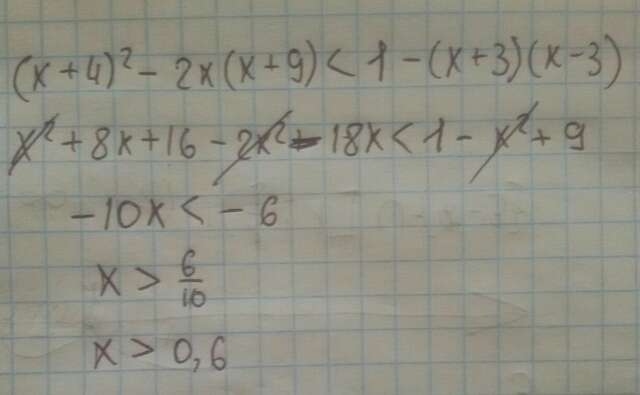 (x+4)² - 2x(x+9) < 1 - (x+3)(x-3)
x² + 8x + 16 - 2x² - 18x < 1 - x² + 9
-10x < -6
x > 6/10
x > 0,6